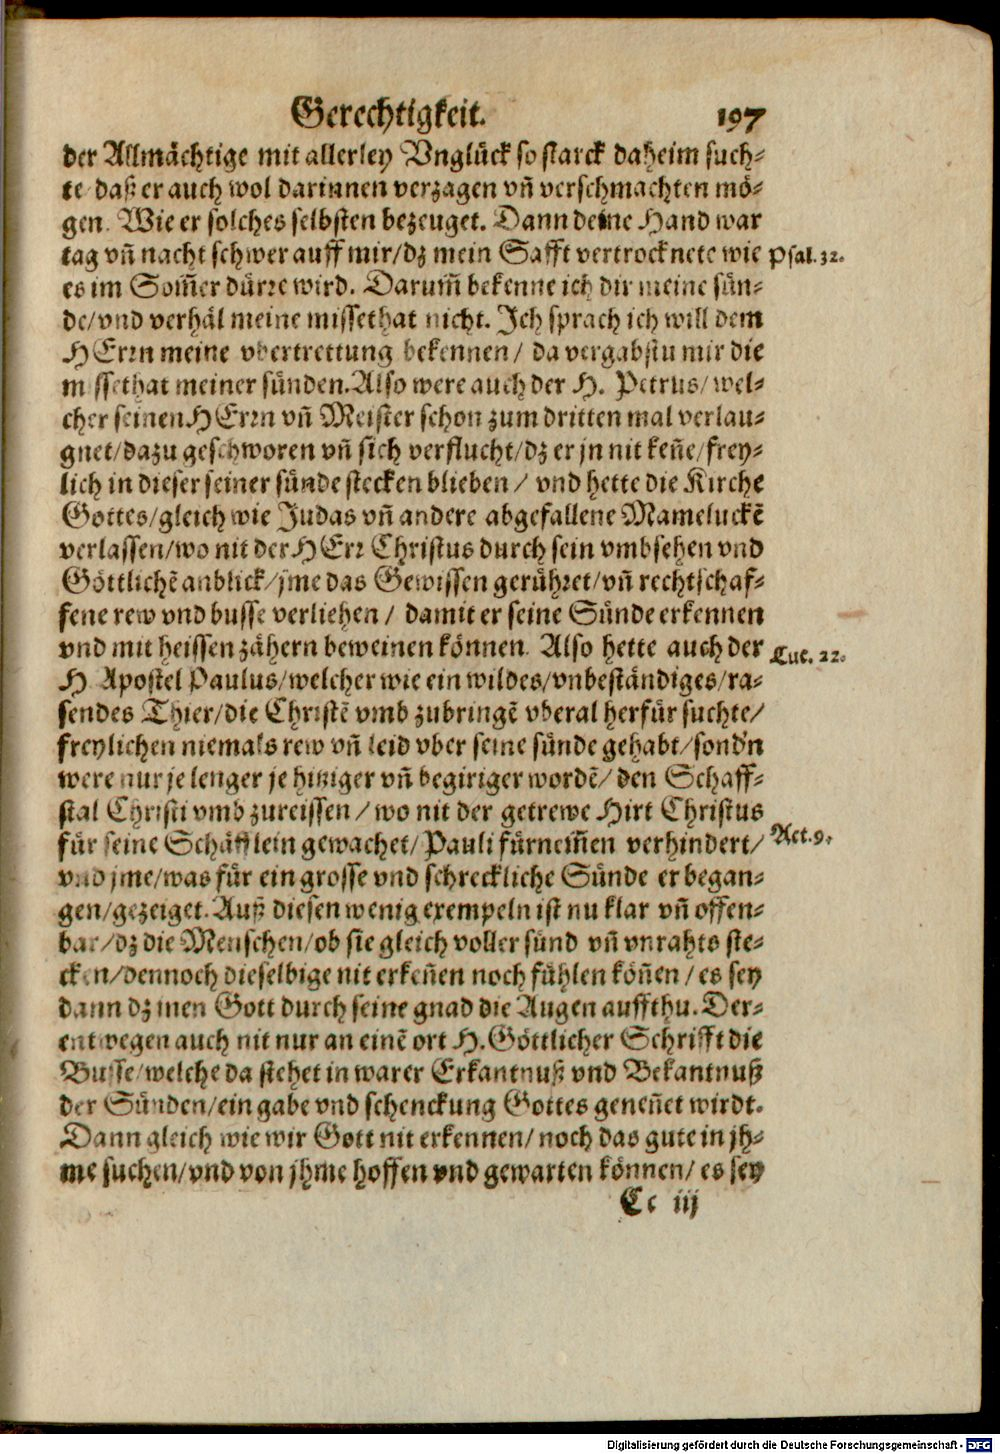 Gerechtigkeit. 197
der Allmächtige mit allerley Vnglück so starck daheim such-
te daß er auch wol darinnen verzagen vñ verschmachten mö-
gen. Wie er solches selbsten bezeuget. Dann deine Hand war
tag vñ nacht schwer auff mir/dz mein Safft vertrocknete wie Psal.32.
es im Som̃er dürre wird. Darum̃ bekenne ich dir meine sün-
de/vnd verhäl meine missethat nicht. Ich sprach ich will dem
HErrn meine vbertrettung bekennen/ da vergabstu mir die
missethat meiner sünden. Also were auch der H. Petrus/wel-
cher seinen HErrn vñ Meister schon zum dritten mal verlau-
gnet/dazu geschworen vñ sich verflucht/dz er jn nit keñe/frey-
lich in dieser seiner sünde stecken blieben/ vnd hette die Kirche
Gottes/gleich wie Judas vñ andere abgefallene Mameluckẽ
verlassen/wo nit der HErr Christus durch sein vmbsehen vnd
Göttlichẽ anblick/jme das Gewissen gerühret/vñ rechtschaf-
fene rew vnd busse verliehen/ damit er seine Sünde erkennen
vnd mit heissen zähern beweinen können. Also hette auch der Luc. 22.
H. Apostel Paulus/welcher wie ein wildes/vnbeständiges/ra-
sendes Thier/die Christẽ vmb zubringẽ vberal herfür suchte/
freylichen niemals rew vñ leid vber seine sünde gehabt/sond'n
were nur je lenger je hitziger vñ begiriger wordẽ/ den Schaff-
stal Christi vmb zureissen/wo nit der getrewe Hirt Christus
für seine Schäfflein gewachet/Pauli fürnem̃en verhindert/ Act.9.
vnd jme/was für ein grosse vnd schreckliche Sünde er began-
gen/gezeiget. Auß diesen wenig exempeln ist nu klar vñ offen-
bar/dz die Menschen/ob sie gleich voller sünd vñ vnrahts ste-
cken/dennoch dieselbige nit erkeñen noch fühlen köñen/ es sey
dann dz jnen Gott durch seine gnad die Augen auffthu. Der-
entwegen auch nit nur an einẽ ort H. Göttlicher Schrifft die
Busse/welche da stehet in warer Erkantnuß vnd Bekantnuß
der Sünden/ein gabe vnd schenckung Gottes geneñet wirdt.
Dann gleich wie wir Gott nit erkennen/noch das gute in jh-
me suchen/vnd von jhme hoffen vnd gewarten können/ es sey
Cc iij
Digitalisierung gefördert durch die Deutsche Forschungsgemeinschaft - DFG